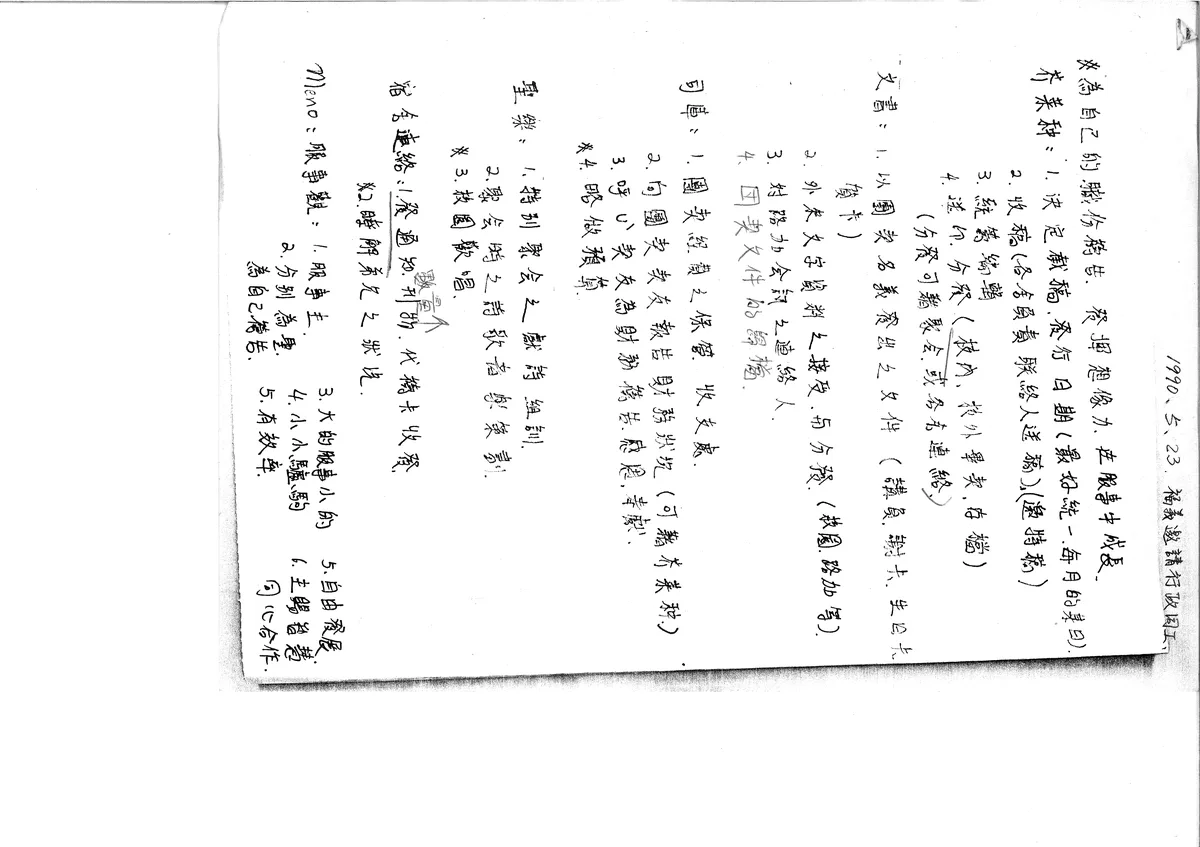 1990、5、23. 福義邀請行政同工
※為自己的職份禱告、發揮想像力、在服事中成長、
芥菜种：1. 決定截稿、發行日期(最好統一、每月的某日).
2. 收稿(各舍負責聯絡人送稿)、(邀特稿)
3. 統籌編輯
4. 送印、分發(校內、校外畢契、存檔)
(分發可藉聚会、或各舍連絡)
文書：1. 以團契名義發出之文件(講員、謝卡、生日卡
賀卡)
2. 外來文字資料之接受、与分發.(校園、路加等)
3. 對路加会訊之連絡人.
4. 团契文件的歸檔.
司庫：1. 團契經費之保管、收支處.
2. 向團契契友報告財務狀況(可藉芥菜种.)
3. 呼心契友為財務禱告感恩、奉獻.
※4. 略做預算.
聖樂：1. 特別聚会之獻詩組訓.
2. 聚会時之詩歌音樂策劃.
※3. 校園歡唱.
宿舍連絡：1. 發通知、刊物、代禱卡收發、
數量
※2. 瞭解弟兄之狀況.
Memo：服事觀：1. 服事主.
2. 分別為聖.
為自己禱告.
3. 大的服事小的
4. 小小驢駒
5. 有效率.
5. 自由發展.
6. 主賜智慧
同心合作.